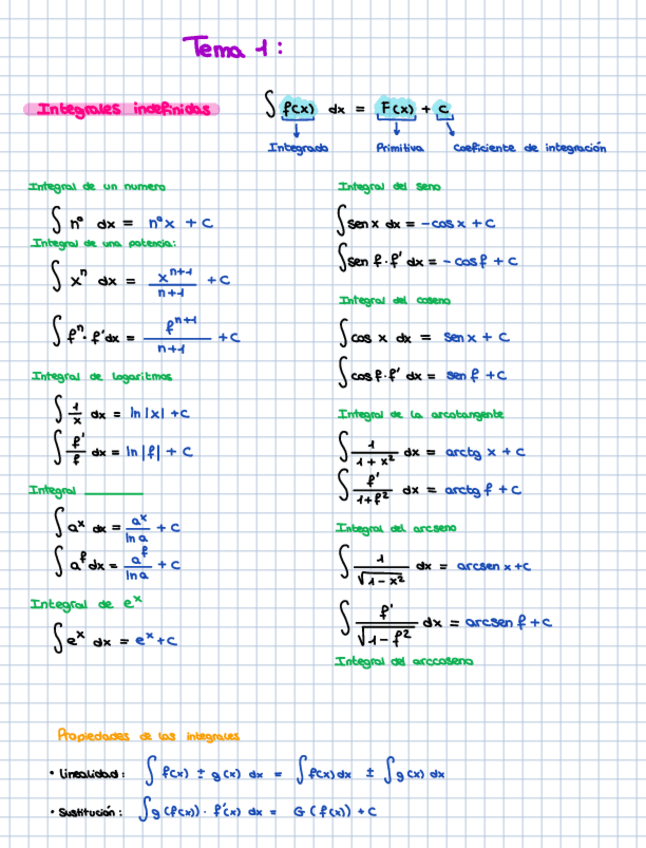 Tema 1:
Integrales indefinidas
∫ f(x) dx = F(x) + C
Integrado Primitiva Coeficiente de integración
Integral de un numero
∫ nº dx = nºx + C
Integral de una potencia:
∫ xⁿ dx = xⁿ⁺¹/n+1 + C
∫ fⁿ · f' dx = fⁿ⁺¹/n+1 + C
Integral de logaritmos
∫ 1/x dx = ln |x| + C
∫ f'/f dx = ln |f| + C
Integral ______
∫ aˣ dx = aˣ/ln a + C
∫ a^f dx = a^f/ln a + C
Integral de eˣ
∫ eˣ dx = eˣ + C
Integral del seno
∫ sen x dx = -cos x + C
∫ sen f · f' dx = -cos f + C
Integral del coseno
∫ cos x dx = sen x + C
∫ cos f · f' dx = sen f + C
Integral de la arcotangente
∫ 1/1 + x² dx = arctg x + C
∫ f'/1+f² dx = arctg f + C
Integral del arcseno
∫ 1/√1 - x² dx = arcsen x + C
∫ f'/√1 - f² dx = arcsen f + C
Integral del arccoseno
Propiedades de las integrales
· Linealidad: ∫ f(x) ± g(x) dx = ∫ f(x) dx ± ∫ g(x) dx
· Sustitución: ∫ g(f(x)) · f'(x) dx = G(f(x)) + C